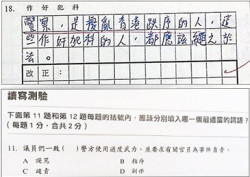 18. 作奸犯科
警察,是擾亂香港秩序的人,這
些作奸犯科的人,都應該繩之於
法。
改正:
讀寫測驗
下面第 11 題和第 12 題每題的括號內,應該分別填入哪一個最適當的詞語?
(每題 1 分,合共 2 分)
11. 議員們一致( )警方使用過度武力,並要求有關官員負責和
A 謾罵 B 指斥
C 譴責 D